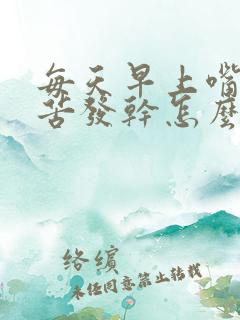 每天早上嘴
苦發幹怎麼
络缤
未任同意禁止转载